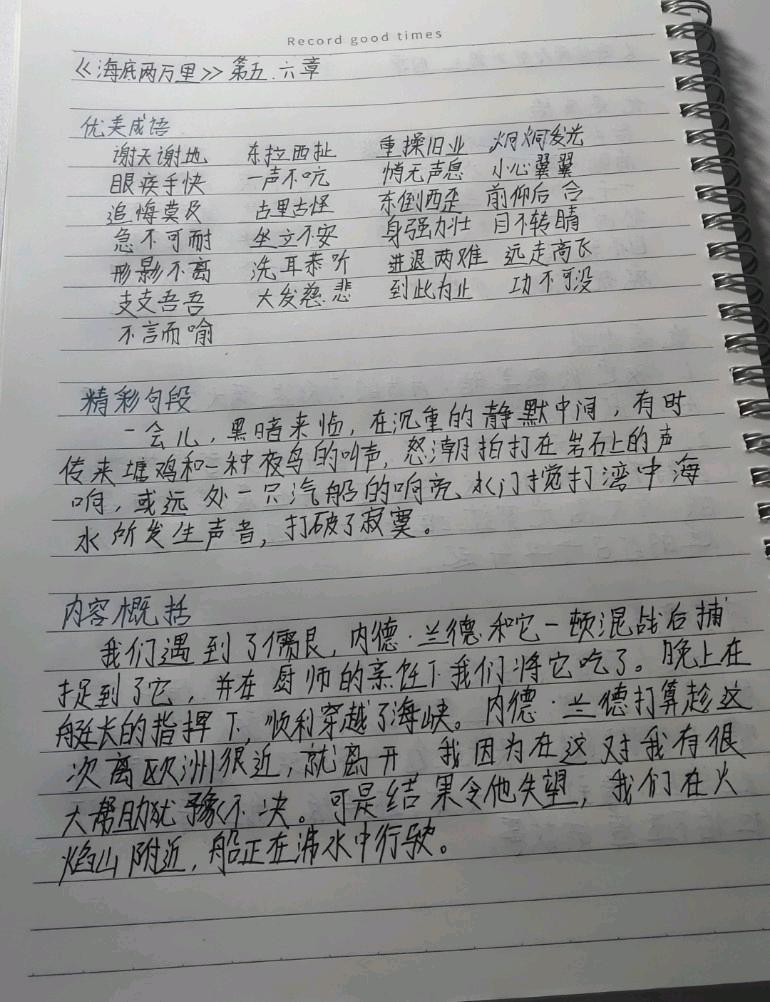 Record good times
《海底两万里》第五.六章
优美成语
谢天谢地 东拉西扯 重操旧业 炯炯发光
眼疾手快 一声不吭 悄无声息 小心翼翼
追悔莫及 古里古怪 东倒西歪 前仰后合
急不可耐 坐立不安 身强力壮 目不转睛
形影不离 洗耳恭听 进退两难 远走高飞
支支吾吾 大发慈悲 到此为止 功不可没
不言而喻
精彩句段
一会儿,黑暗来临,在沉重的静默中间,有时
传来塘鸡和一种夜鸟的叫声,怒潮拍打在岩石上的声
响,或远处一只汽船的响亮、水门搅打湾中海
水所发生声音,打破了寂寞。
内容概括
我们遇到了儒艮,内德·兰德和它一顿混战后捕
捉到了它,并在厨师的烹饪下我们将它吃了。晚上在
艇长的指挥下,顺利穿越了海峡。内德·兰德打算趁这
次离欧洲很近,就离开 我因为在这对我有很
大帮助犹豫不决。可是结果令他失望,我们在火
焰山附近,船正在沸水中行驶。